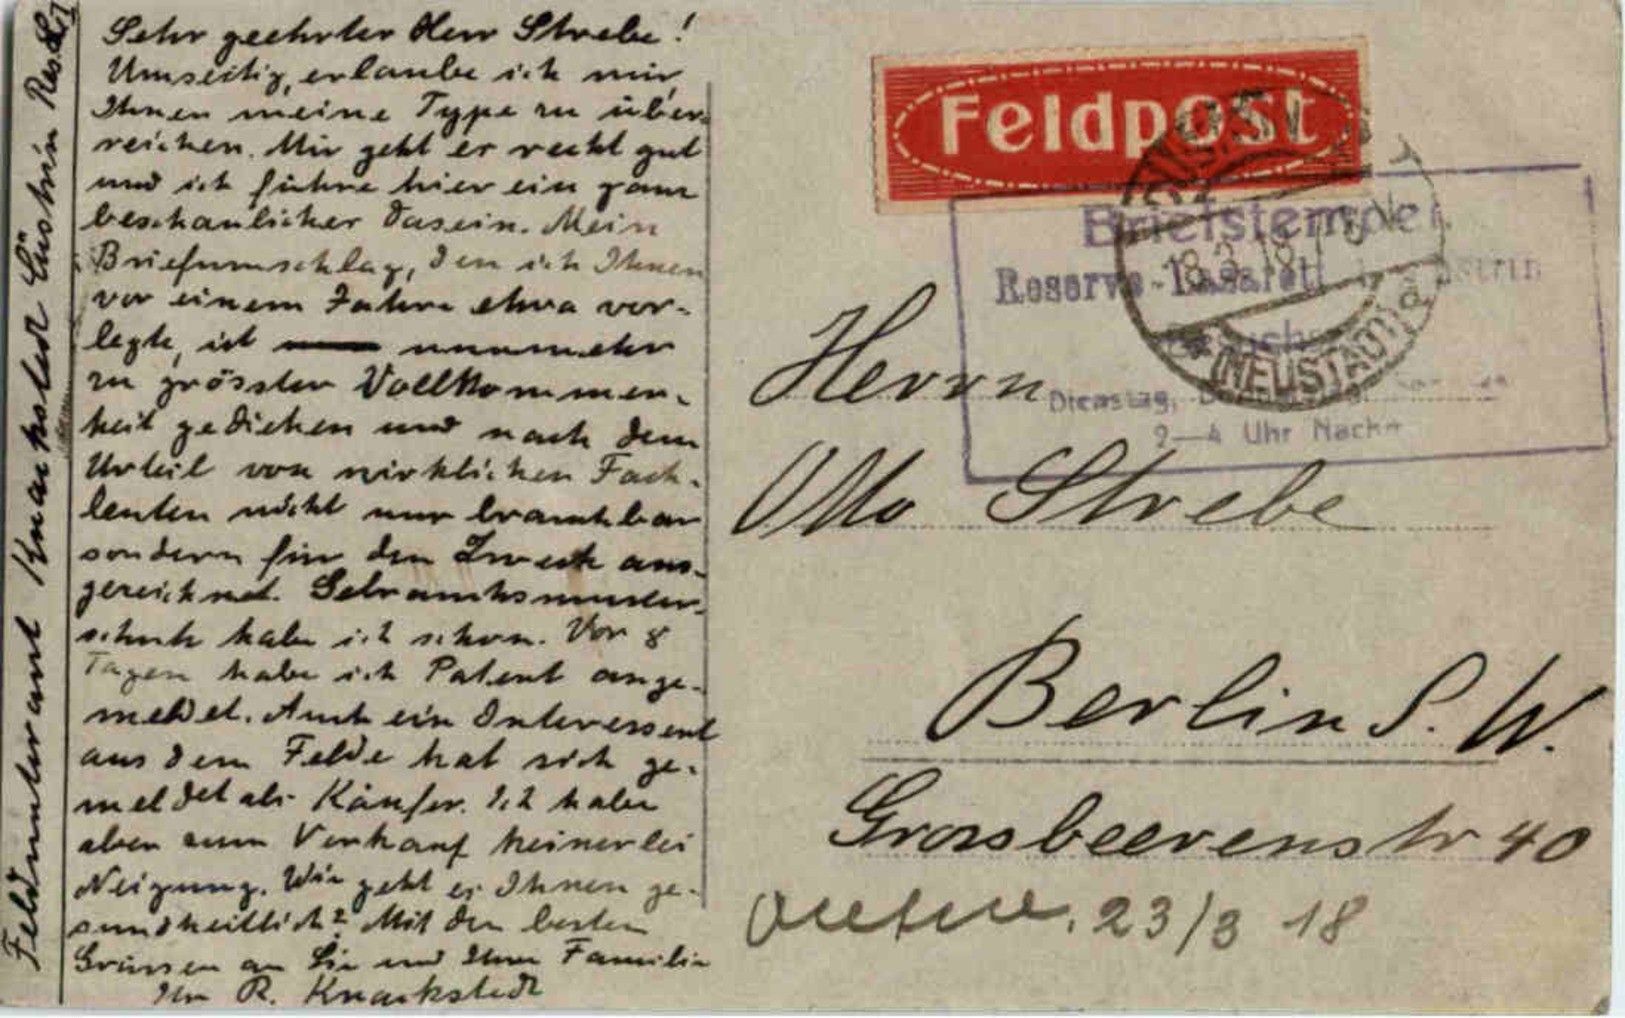 Sehr geehrter Herr Strebe!
Umseitig, erlaube ich mir,
Ihnen meine Type zu über-
reichen. Mir geht er recht gut
und ich führe hier ein ganz
beschaulicher Dasein. Mein
Briefumschlag, den ich Ihnen
vor einem Jahre etwa vor-
legte, ist nunmehr
zu grösster Vollkommen-
heit gediehen und nach dem
Urteil von wirklichen Fach-
leuten nicht nur brauchbar
sondern für den Zweck aus-
gezeichnet. Gebrauchsmuster-
schutz habe ich schon. Vor 8
Tagen habe ich Patent ange-
meldet. Auch ein Interessent
aus dem Felde hat sich ge-
meldet als Käufer. Ich habe
aber zum Verkauf keinerlei
Neigung. Wie geht es Ihnen ge-
sundheitlich? Mit den besten
Grüssen an Sie und Ihre Familie
Ihr R. Knackstedt
Feldpost
Briefstempel
Reserve-Lazarett
Dienstag,
2-4 Uhr Nachm
18.3.18
(NEUSTADT)
Herrn
Otto Strebe
Berlin S. W.
Grossbeerenstr 40
23/3 18
Feldunterarzt Knackstedt Cüstrin Res.